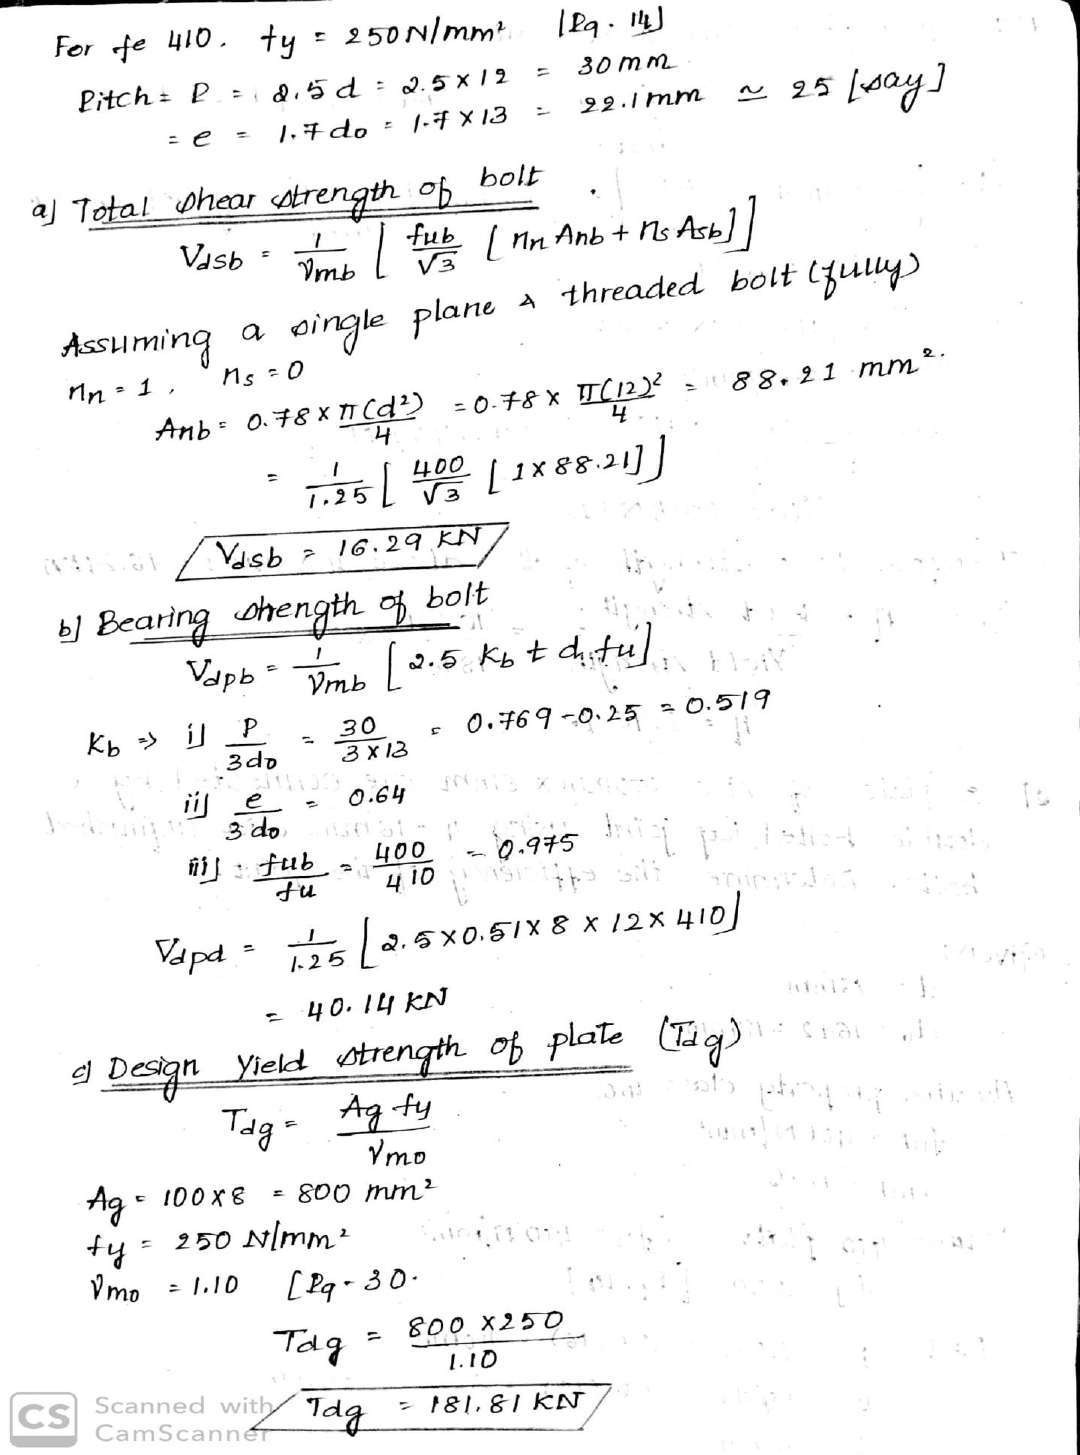 For fe 410. fy = 250 N/mm² [Pg. 14]
Pitch = P = 2.5 d = 2.5 x 12 = 30 mm
= e = 1.7 do = 1.7 x 13 = 22.1 mm ≃ 25 [say]
a] Total shear strength of bolt
Vdsb = 1/γmb [ fub/√3 [ nn Anb + ns Asb ] ]
Assuming a single plane & threaded bolt (fully)
nn = 1, ns = 0
Anb = 0.78 x π(d²)/4 = 0.78 x π(12)²/4 = 88.21 mm².
= 1/1.25 [ 400/√3 [ 1x88.21] ]
Vdsb = 16.29 KN
b] Bearing strength of bolt
Vdpb = 1/γmb [ 2.5 Kb t d fu ]
Kb => i] P/3do = 30/3x13 = 0.769 - 0.25 = 0.519
ii] e/3do = 0.64
iii] fub/fu = 400/410 = 0.975
Vdpd = 1/1.25 [ 2.5x0.51x 8 x 12x 410 ]
= 40.14 KN
c] Design Yield strength of plate (Tdg)
Tdg = Ag fy/γmo
Ag = 100x8 = 800 mm²
fy = 250 N/mm²
γmo = 1.10 [Pg - 30.
Tdg = 800 x250/1.10
Tdg = 181.81 KN
CS Scanned with
CamScanner